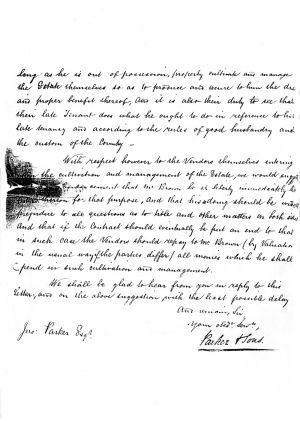 long as he is out of possession, properly cultivate and manage
the Estate themselves so as to produce and secure to him the due
and proper benefit thereof, And it is also their duty to see that
their late Tenant does what he ought to do in reference to his
late tenancy and according to the rules of good husbandry and
the custom of the County —
With respect however to the Vendors themselves entering
the cultivation and management of the Estate, we would suggest
that Mr Brown be at liberty immediately to
for that purpose, and that his so doing should be without
prejudice to all questions as to title and other matters on both sides
And that if the Contract should eventually be put an end to that
in such case the Vendors should repay to Mr Brown (by Valuation
in the usual way if the parties differ) all monies which he shall
spend in such cultivation and management.
We shall be glad to hear from you in reply to this
letter, and on the above suggestion with the least possible delay
And remain, Sir,
Your obedt Servts,
Parker & Sons.
Jno: Parker Esqr.